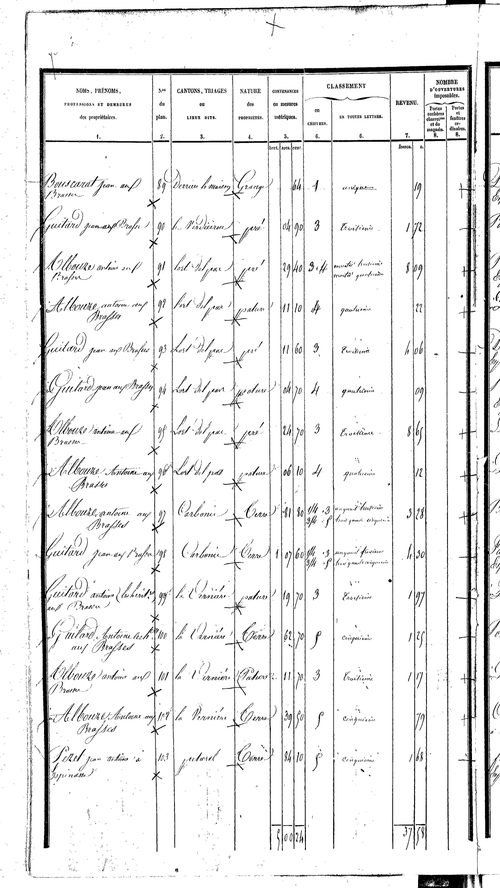 NOMS, PRÉNOMS,
PROFESSIONS ET DEMEURES
des propriétaires.
Nos du plan.
CANTONS, TRIAGES
ou
LIEUX DITS.
NATURE
des
PROPRIÉTÉS.
CONTENANCES
en mesures
métriques.
CLASSEMENT
en CHIFFRES.
EN TOUTES LETTRES.
REVENU.
NOMBRE
D'OUVERTURES
imposables.
1. 2. 3. 4. 5. 6. 6. 7. 8. 8.
hect. ares. cent. francs. c.
Bouscarat jean aux Brasses 89 Grange 64 1 unique 19
Guitard jean aux Brasses 90 la Verdieirie pré 04 90 3 troisième 1 72
Albouze antoine aux Brasses 91 Lort del pac pré 29 40 3 4 moitié troisième moitié quatrième 8 09
Albouze antoine aux Brasses 92 Lort del pac pature 11 10 4 quatrième 22
Guitard jean aux Brasses 93 Lort del pac pré 11 60 3 troisième 4 06
Guitard jean aux Brasses 94 Lort del pac pature 04 70 4 quatrième 09
Albouze antoine aux Brasses 95 Lort del pac pré 24 70 3 troisième 8 65
Albouze Antoine aux Brasses 96 Lort del pac pature 06 10 4 quatrième 12
Albouze antoine aux Brasses 97 Carbonié Terre 81 80 1/4 3 3/4 5 3 28
Guitard jean aux Brasses 98 Carbonié Terre 1 07 60 1/4 3 3/4 5 4 30
Guitard antoine aux Brasses 99 la Vernière pature 19 70 3 troisième 1 97
Guitard Antoine aux Brasses 100 la Vernière Terre 62 70 5 cinquième 1 25
Albouze antoine aux Brasses 101 la Vernière Pature 11 70 3 troisième 1 17
Albouze Antoine aux Brasses 102 la Vernière Terre 39 50 5 cinquième 79
Pezet jean antoine à 103 puturel Terre 84 10 5 cinquième 1 68
5 00 24 37 58